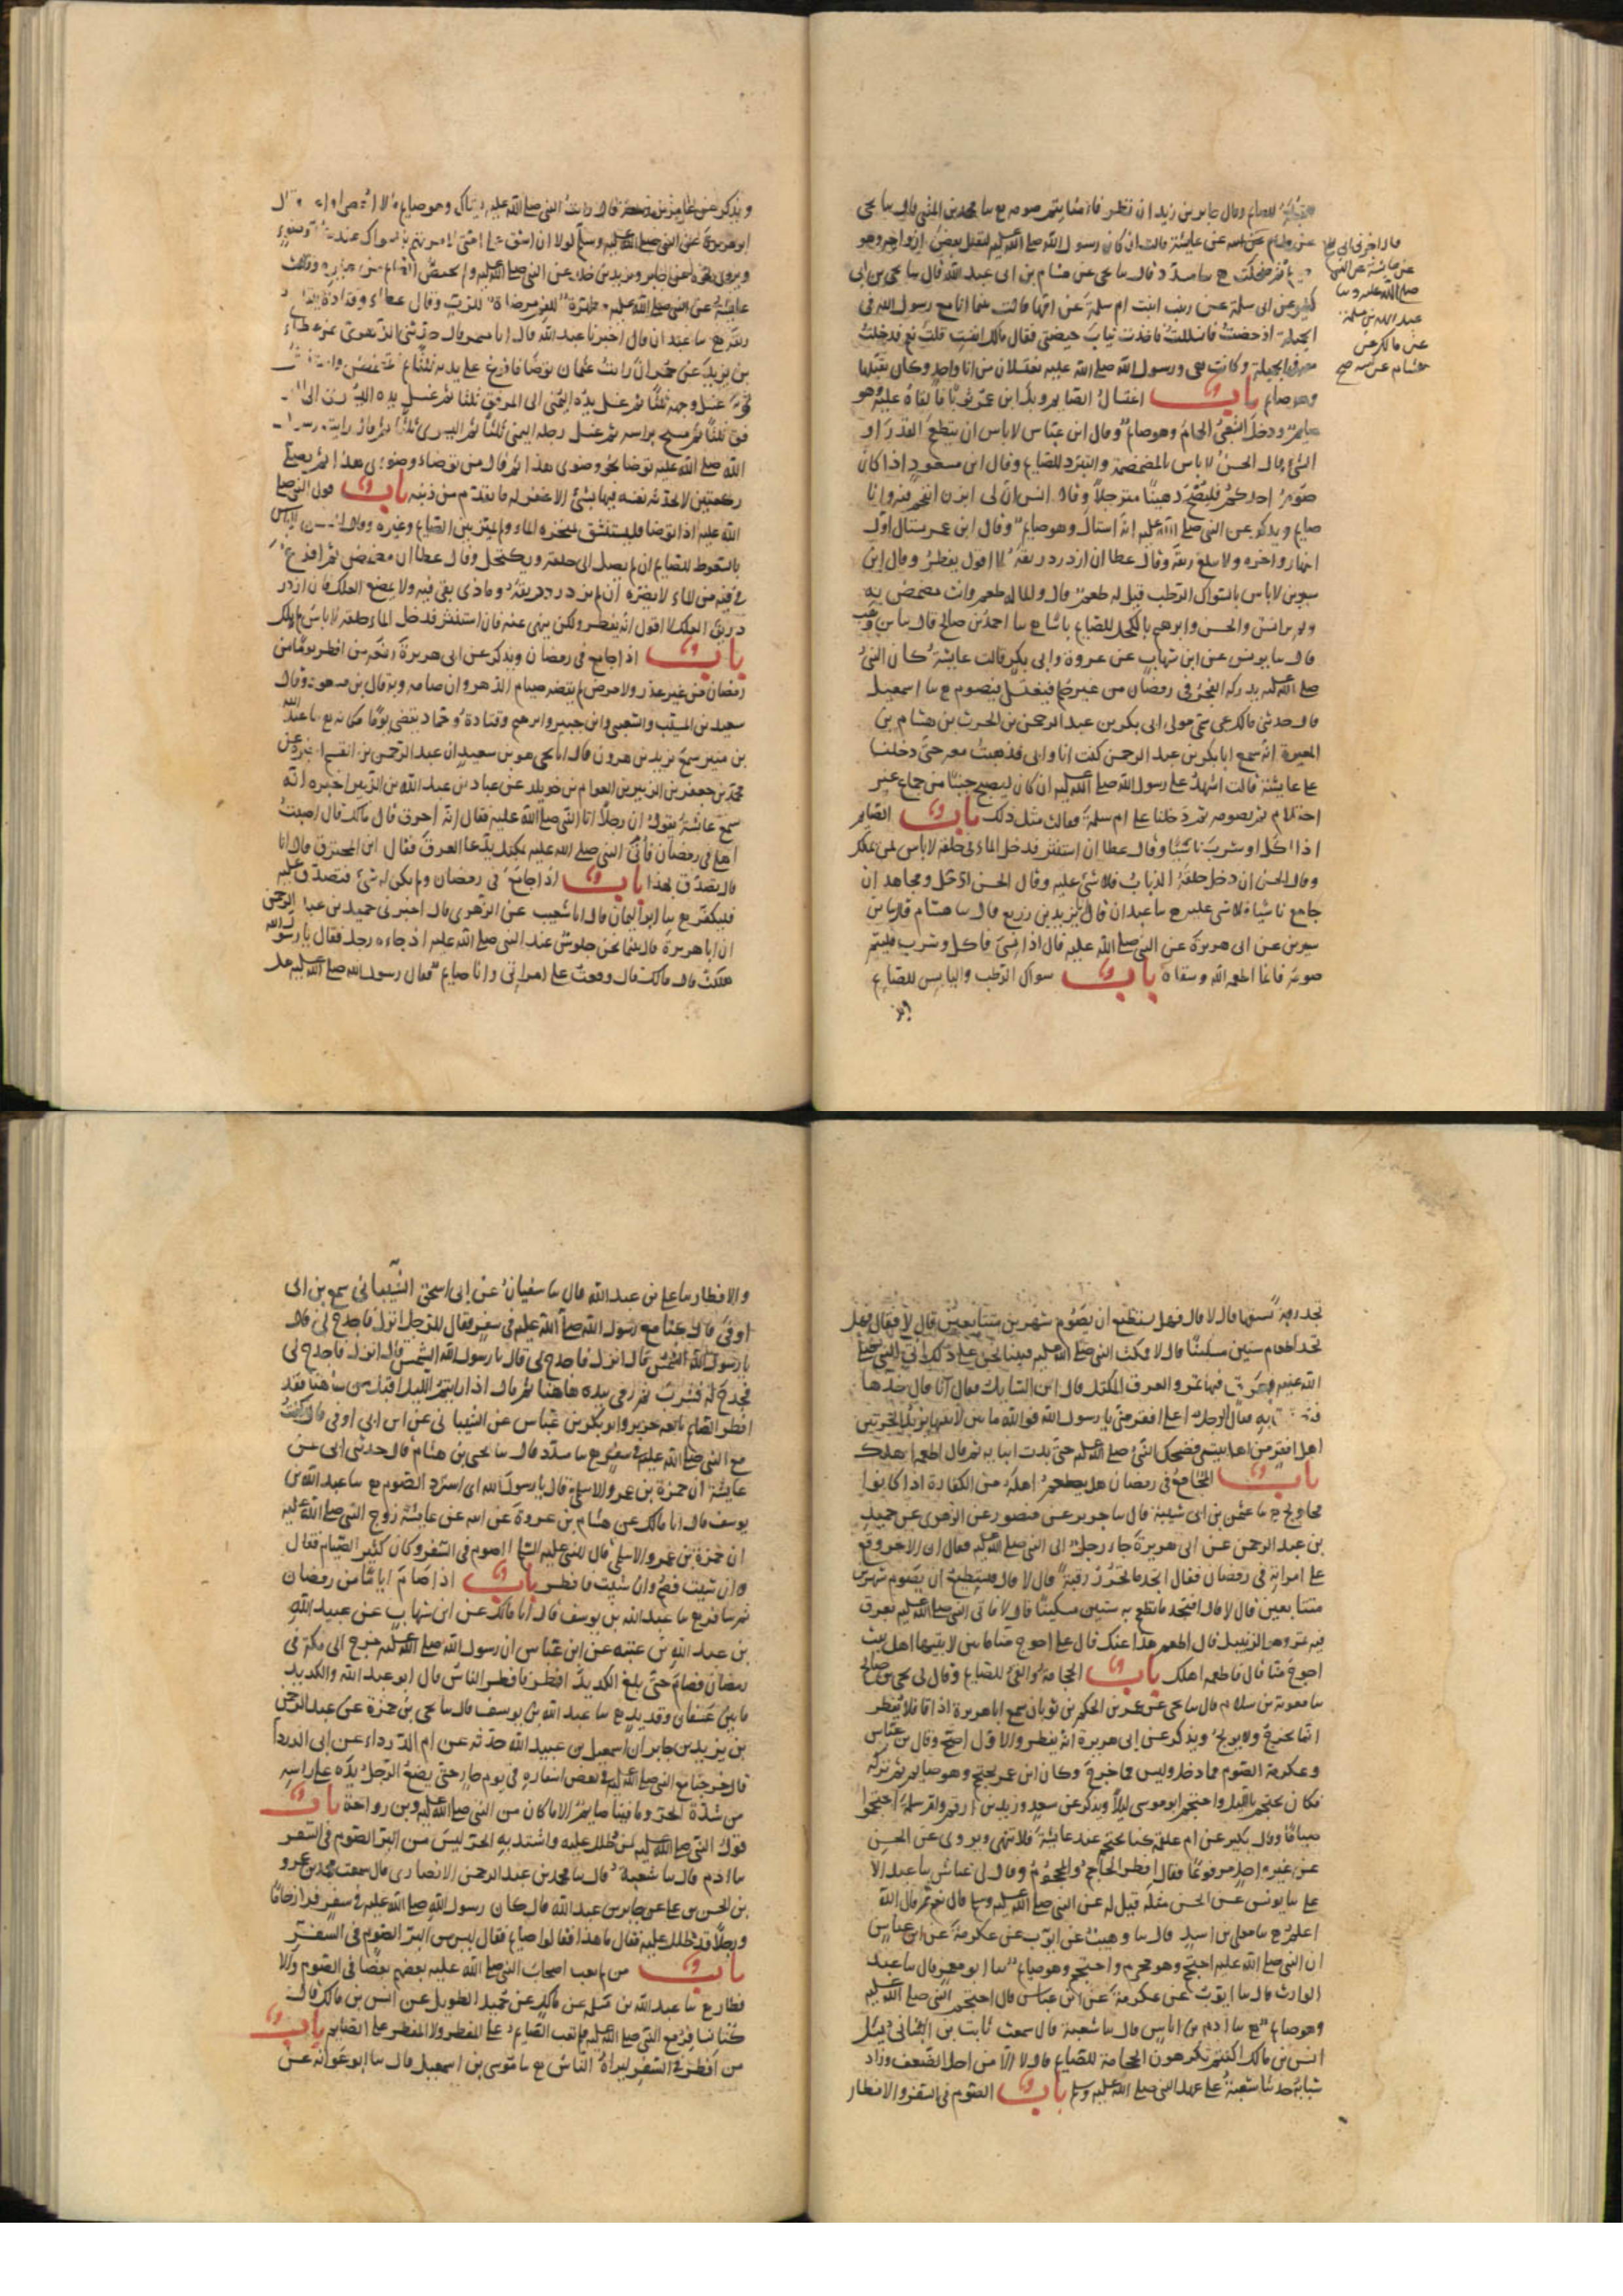 للصايم وقال جابر بن زيد ان نظر فامنا يتم صومه ع سا محمد بن المثنى قال سا يحيى
عن هشام عن ابيه عن عايشة قالت ان كان رسول الله صلى الله عليه ليقبل بعض ازواجه وهو
ثم ضحكت ح سا مسدد قال سا يحيى عن هشام بن ابي عبد الله قال سا يحيى بن ابي
كثير عن ابي سلمة عن زينب ابنت ام سلمة عن امها قالت بينما انا مع رسول الله في
الخميلة اذ حضت فانسللت فاخذت ثياب حيضتي فقال مالك انفست قلت نعم فدخلت
معه في الخميلة وكانت هي ورسول الله صلى الله عليه يغتسلان من انا واحد وكان يقبلها
وهو صايم باب اغتسال الصايم وبل ابن عمر ثوبا فالقاه عليه وهو
صايم ودخل الشعبي الحمام وهو صايم وقال ابن عباس لا باس ان يتطعم القدر او
الشئ وقال الحسن لا باس بالمضمضة والتبرد للصايم وقال ابن مسعود اذا كان
صوم احدكم فليصبح دهينا مترجلا وقال انس ان لي ابزن اتقحم فيه وانا
صايم ويذكر عن النبي صلى الله عليه انه استاك وهو صايم وقال ابن عمر يستاك اول
النهار واخره ولا يبلع ريقه وقال عطا ان ازدرد ريقه لا اقول يفطر وقال ابن
سيرين لا باس بالسواك الرطب قيل له طعم قال والما له طعم وانت تمضمض به
ولم ير انس والحسن وابرهيم بالكحل للصايم باسا ع سا احمد بن صالح قال سا بن وهب
قال سا يونس عن ابن شهاب عن عروة وابي بكر قالت عايشة كان النبي
صلى الله عليه يدركه الفجر في رمضان من غير حلم فيغتسل فيصوم ع سا اسمعيل
قال حدثني مالك عن سمي مولى ابي بكر بن عبد الرحمن بن الحرث بن هشام بن
المغيرة انه سمع ابا بكر بن عبد الرحمن كنت انا وابي فذهبت معه حتى دخلنا
على عايشة قالت اشهد على رسول الله صلى الله عليه ان كان ليصبح جنبا من جماع غير
احتلام ثم يصومه ثم دخلنا على ام سلمة فقالت مثل ذلك باب الصايم
اذا اكل او شرب ناسيا وقال عطا ان استنثر فدخل الماء في حلقه لا باس لم يملك
وقال الحسن ان دخل حلقه الذباب فلا شئ عليه وقال الحسن ومجاهد ان
جامع ناسيا فلا شي عليه ح سا عبدان قال يزيد بن زريع قال سا هشام قال سا بن
سيرين عن ابي هريرة عن النبي صلى الله عليه قال اذا نسي فاكل وشرب فليتم
صومه فانما اطعمه الله وسقاه باب سواك الرطب واليابس للصايم
قال اخبرني ابي
عن عايشة عن النبي
صلى الله عليه وسا
عبد الله بن مسلمة
عن مالك عن
هشام عن ابيه صح
ويذكر عن عامر بن ربيعة قال رايت النبي صلى الله عليه يستاك وهو صايم ما لا احصي او اعد وقال
ابو هريرة عن النبي صلى الله عليه وسلم لولا ان اشق على امتي لامرتهم بالسواك عند كل وضوء
ويروى نحوه عن جابر وزيد بن خالد عن النبي صلى الله عليه ولم يخص الصايم من غيره وقالت
عايشة عن النبي صلى الله عليه مطهرة للفم مرضاة للرب وقال عطاء وقتادة يبتلع
ريقه ع سا عبدان قال اخبرنا عبد الله قال انا معمر قال حدثني الزهري عن عطاء
بن يزيد عن حمران رايت عثمان توضا فافرغ على يديه ثلثا ثم تمضمض واستنثر
ثم غسل وجهه ثلثا ثم غسل يده اليمنى الى المرفق ثلثا ثم غسل يده اليسرى الى
المرفق ثلثا ثم مسح براسه ثم غسل رجله اليمنى ثلثا ثم اليسرى ثلثا ثم قال رايت رسول
الله صلى الله عليه توضا نحو وضوي هذا ثم قال من توضا وضوئي هذا ثم يصلي
ركعتين لا يحدث نفسه فيهما بشئ الا غفر له ما تقدم من ذنبه باب قول النبي صلى
الله عليه اذا توضا فليستنشق بمنخره الماء ولم يميز بين الصايم وغيره وقال الحسن لا باس
بالسعوط للصايم ان لم يصل الى حلقه ويكتحل وقال عطا ان مضمض ثم افرغ
ما في فيه من الماء لا يضره ان لم يزدرد ريقه وماذا بقي فيه ولا يمضغ العلك فان ازدرد
ريق العلك لا اقول انه يفطر ولكن ينهى عنه فان استنثر فدخل الماء حلقه لا باس لم يملك
باب اذا جامع في رمضان ويذكر عن ابي هريرة رفعه من افطر يوما من
رمضان من غير عذر ولا مرض لم يقضه صيام الدهر وان صامه وبه قال بن مسعود وقال
سعيد بن المسيب والشعبي وابن جبير وابرهيم وقتادة وحماد يقضي يوما مكانه ع سا عبد الله
بن منير سمع يزيد بن هرون قال انا يحيى هو بن سعيد ان عبد الرحمن بن القسم اخبره عن
محمد بن جعفر بن الزبير بن العوام بن خويلد عن عباد بن عبد الله بن الزبير اخبره انه
سمع عايشة تقول ان رجلا اتا النبي صلى الله عليه فقال انه احترق قال مالك قال اصبت
اهلي في رمضان فاتي النبي صلى الله عليه بمكتل يدعا العرق فقال اين المحترق قال انا
قال تصدق بهذا باب اذا جامع في رمضان ولم يكن له شئ فتصدق عليه
فليكفر ع سا ابو اليمان قال انا شعيب عن الزهري قال اخبرني حميد بن عبد الرحمن
ان ابا هريرة قال بينما نحن جلوس عند النبي صلى الله عليه اذ جاءه رجل فقال يا رسول الله
هلكت قال مالك قال وقعت على امراتي وانا صايم فقال رسول الله صلى الله عليه هل
تجد رقبة تعتقها قال لا قال فهل تستطيع ان تصوم شهرين متتابعين قال لا فقال فهل
تجد اطعام ستين مسكينا قال لا فمكث النبي صلى الله عليه فبينا نحن على ذلك اتي النبي صلى
الله عليه بعرق فيها تمر والعرق المكتل قال اين السايل فقال انا قال خذها
فتصدق به فقال الرجل اعلى افقر مني يا رسول الله فوالله ما بين لابتيها يريد الحرتين
اهل افقر من اهل بيتي فضحك النبي صلى الله عليه حتى بدت انيابه ثم قال اطعمه اهلك
باب المجامع في رمضان هل يطعم اهله من الكفارة اذا كانوا
محاويج ح سا عثمن بن ابي شيبة قال سا جرير عن منصور عن الزهري عن حميد
بن عبد الرحمن عن ابي هريرة جاء رجل الى النبي صلى الله عليه فقال ان الاخر وقع
على امراته في رمضان فقال اتجد ما تحرر رقبة قال لا قال فتستطيع ان تصوم شهرين
متتابعين قال لا قال افتجد ما تطعم به ستين مسكينا قال لا فاتي النبي صلى الله عليه بعرق
فيه تمر وهو الزبيل قال اطعم هذا عنك قال على احوج منا ما بين لابتيها اهل بيت
احوج منا قال فاطعمه اهلك باب الحجامة والقئ للصايم وقال لي يحيى بن صالح
سا معوية بن سلام قال سا يحيى عن عمر بن الحكم بن ثوبان سمع ابا هريرة اذا قا فلا يفطر
انما يخرج ولا يولج ويذكر عن ابي هريرة انه يفطر والاول اصح وقال بن عباس
وعكرمة الصوم مما دخل وليس مما خرج وكان ابن عمر يحتجم وهو صايم ثم تركه
فكان يحتجم بالليل واحتجم ابو موسى ليلا ويذكر عن سعد وزيد بن ارقم وام سلمة احتجموا
صياما وقال بكير عن ام علقمة كنا نحتجم عند عايشة فلا تنهى ويروى عن الحسن
عن غير واحد مرفوعا فقال افطر الحاجم والمحجوم وقال لي عياش سا عبد الا
على سا يونس عن الحسن مثله قيل له عن النبي صلى الله عليه وسلم قال نعم ثم قال الله
اعلم ح سا معلى بن اسد قال سا وهيب عن ايوب عن عكرمة عن ابن عباس
ان النبي صلى الله عليه احتجم وهو محرم واحتجم وهو صايم سا ابو معمر قال سا عبد
الوارث قال سا ايوب عن عكرمة عن ابن عباس قال احتجم النبي صلى الله عليه
وهو صايم ع سا ادم بن اياس قال سا شعبة قال سمعت ثابت بن البناني يسئل
انس بن مالك اكنتم تكرهون الحجامة للصايم قال لا الا من اجل الضعف وزاد
شبابة حدثنا شعبة على عهد النبي صلى الله عليه وسلم باب الصوم في السفر والافطار
والافطار سا علي بن عبد الله قال سا سفيان عن ابي اسحق الشيباني سمع بن ابي
اوفى قال كنا مع رسول الله صلى الله عليه في سفر فقال للرجل انزل فاجدح لي قال
يا رسول الله الشمس قال انزل فاجدح لي قال يا رسول الله الشمس قال انزل فاجدح لي
فجدح له فشرب ثم رمى بيده هاهنا ثم قال اذا رايتم الليل اقبل من هاهنا فقد
افطر الصايم تابعه جرير وابو بكر بن عياش عن الشيباني عن ابن ابي اوفى قال كنت
مع النبي صلى الله عليه في سفر ع سا مسدد قال سا يحيى بن هشام قال حدثني ابي عن
عايشة ان حمزة بن عمرو الاسلمي قال يا رسول الله اني اسرد الصوم ع سا عبد الله بن
يوسف قال انا مالك عن هشام بن عروة عن ابيه عن عايشة زوج النبي صلى الله عليه
ان حمزة بن عمرو الاسلمي قال للنبي عليه السلم ااصوم في السفر وكان كثير الصيام فقال
ان شيت فصم وان شيت فافطر باب اذا صام اياما من رمضان
ثم سافر ع سا عبد الله بن يوسف قال انا مالك عن ابن شهاب عن عبيد الله
بن عبد الله بن عتبة عن ابن عباس ان رسول الله صلى الله عليه خرج الى مكة في
رمضان فصام حتى بلغ الكديد افطر فافطر الناس قال ابو عبد الله والكديد
ما بين عسفان وقديد ع سا عبد الله بن يوسف قال سا يحيى بن حمزة عن عبد الرحمن
بن يزيد بن جابر ان اسمعيل بن عبيد الله حدثه عن ام الدرداء عن ابي الدرداء
قال خرجنا مع النبي صلى الله عليه في بعض اسفاره في يوم حار حتى يضع الرجل يده على راسه
من شدة الحر وما فينا صايم الا ما كان من النبي صلى الله عليه وبن رواحة باب
قول النبي صلى الله عليه لمن ظلل عليه واشتد به الحر ليس من البر الصوم في السفر
سا ادم قال سا شعبة قال سا محمد بن عبد الرحمن الانصاري قال سمعت محمد بن عمرو
بن الحسن بن علي عن جابر بن عبد الله قال كان رسول الله صلى الله عليه في سفر فرا زحاما
ورجلا قد ظلل عليه فقال ما هذا فقالوا صايم فقال ليس من البر الصوم في السفر
باب من لم يعب اصحاب النبي صلى الله عليه بعضهم بعضا في الصوم والا
فطار ع سا عبد الله بن مسلمة عن مالك عن حميد الطويل عن انس بن مالك قال
كنا نسافر مع النبي صلى الله عليه فلم يعب الصايم على المفطر ولا المفطر على الصايم باب
من افطر في السفر ليراه الناس ع سا موسى بن اسمعيل قال سا ابو عوانة عن